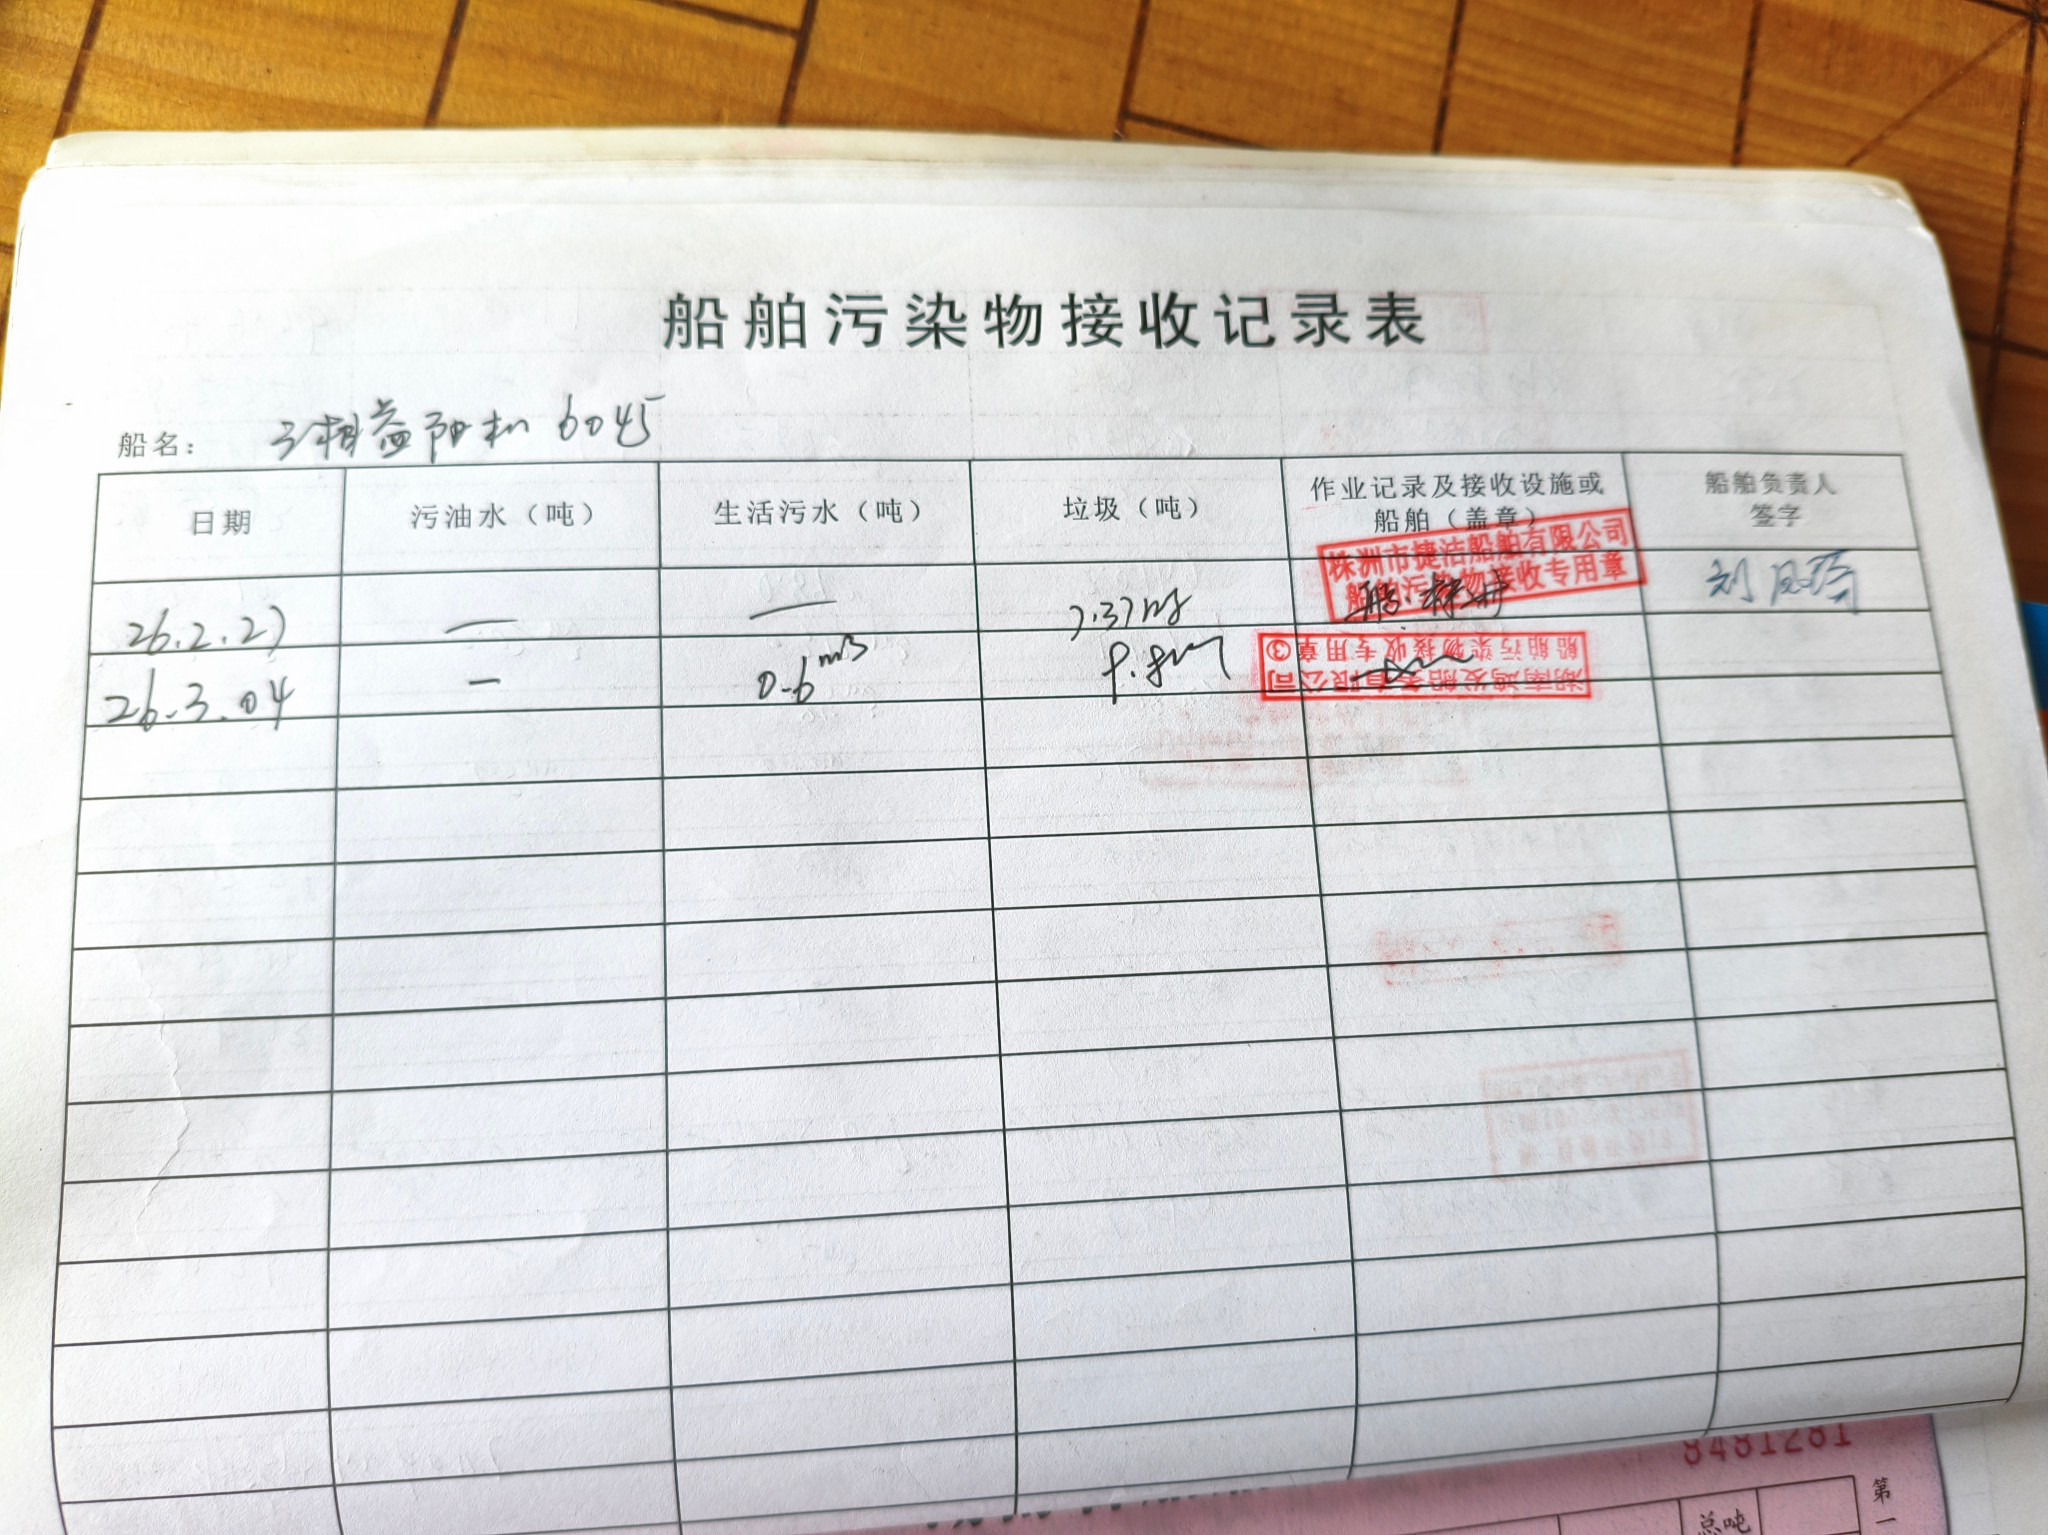 船舶污染物接收记录表
船名： 湘益阳机 6045
日期 污油水（吨） 生活污水（吨） 垃圾（吨） 作业记录及接收设施或船舶（盖章） 船舶负责人签字
株洲市捷洁船舶有限公司
船舶污染物接收专用章
26.2.27 — — 7.37kg
26.3.04 — 0.6m3
船舶污染物接收专用章③
湖南鸿发船务有限公司
8481281
总吨
第一